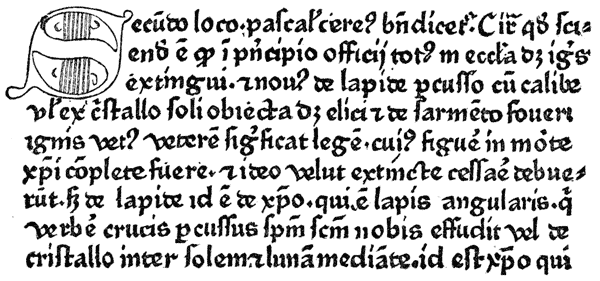 Secūdo loco pascal' cere⁹ bn̄dicet². Circa qd̓ sci-
end̓ ē qp̄ ī pn̄cipio officij tot⁹ in eccl̄a dꝫ igīs
extingui. ⁊ nou⁹ de lapide ꝑcusso cū calibe
vl̓ ex c̓stallo soli obiecta dꝫ elici ⁊ de sarmēto foueri
ignis vet⁹ veterē sig̓ficat legē. cui⁹ figuē in mōte
xp̄i cōplete fuere. ⁊ ideo velut extincte cessaē debue-
rūt. sꝫ de lapide id ē de xp̄o. qui ē lapis angularis. q̓
verbē crucis ꝑcussus sp̄m sc̄m nobis effudit vel de
cristallo inter solem ⁊ lunā mediāte. id est xp̄o qui